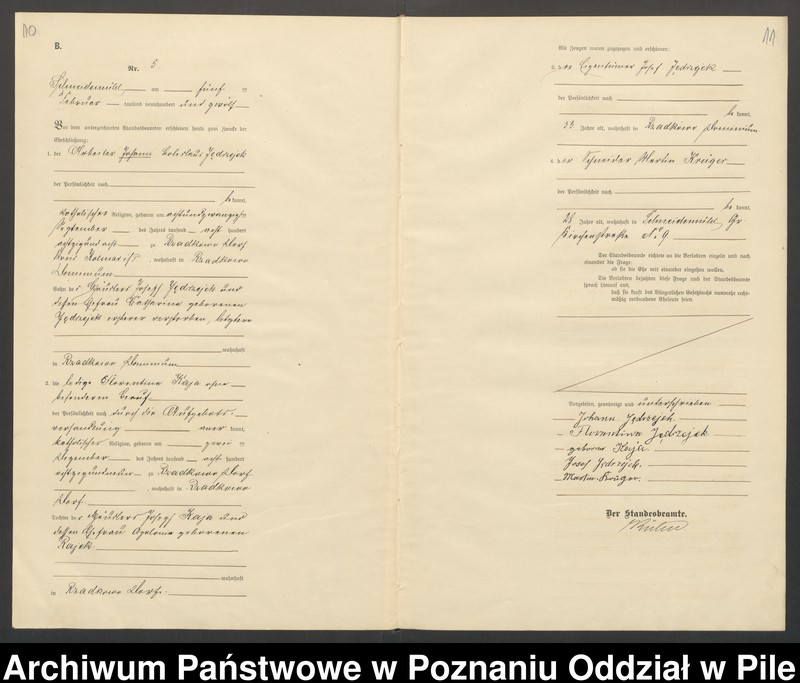 10
B.
Nr. 5.
Schneidemühl, am fünf ten
Februar tausend neunhundert und zwölf
Vor dem unterzeichneten Standesbeamten erschienen heute zum Zwecke der
Eheschließung:
1. der Arbeiter Johann Boleslaus Jędrzejek
der Persönlichkeit nach
be kannt,
katholischer Religion, geboren am achtundzwanzigsten
September des Jahres tausend acht hundert
achtzigundacht zu Rzadkowo Dorf
Kreis Kolmar i/P. , wohnhaft in Rzadkowo
Dominium
Sohn des Häuslers Joseph Jędrzejek und
dessen Ehefrau Catharina geborenen
Jędrzejek ersterer verstorben, letztere
wohnhaft
in Rzadkowo Dominium
2. die ledige Florentina Kaja ohne
besonderen Beruf
der Persönlichkeit nach durch die Aufgebots-
verhandlung aner kannt,
katholischer Religion, geboren am zwei ten
Dezember des Jahres tausend acht hundert
achtzigundneun zu Rzadkowo Dorf
, wohnhaft in Rzadkowo
Dorf
Tochter des Häuslers Joseph Kaja und
dessen Ehefrau Apolonia geborenen
Rajek
wohnhaft
in Rzadkowo Dorf.
11
Als Zeugen waren zugezogen und erschienen:
3. der Eigentümer Josef Jędrzejek
der Persönlichkeit nach
be kannt,
33 Jahre alt, wohnhaft in Rzadkowo Dominium
4. der Schneider Martin Krüger
der Persönlichkeit nach
be kannt,
28 Jahre alt, wohnhaft in Schneidemühl, Gr.
Kirchenstraße No 9
Der Standesbeamte richtete an die Verlobten einzeln und nach
einander die Frage:
ob sie die Ehe mit einander eingehen wollen.
Die Verlobten bejahten diese Frage und der Standesbeamte
sprach hierauf aus,
daß sie kraft des Bürgerlichen Gesetzbuchs nunmehr recht-
mäßig verbundene Eheleute seien.
Vorgelesen, genehmigt und unterschrieben
Johann Jędrzejek.
Florentina Jędrzejek
geborne Kaja.
Josef Jędrzejek.
Martin Krüger.
Der Standesbeamte.
Archiwum Państwowe w Poznaniu Oddział w Pile